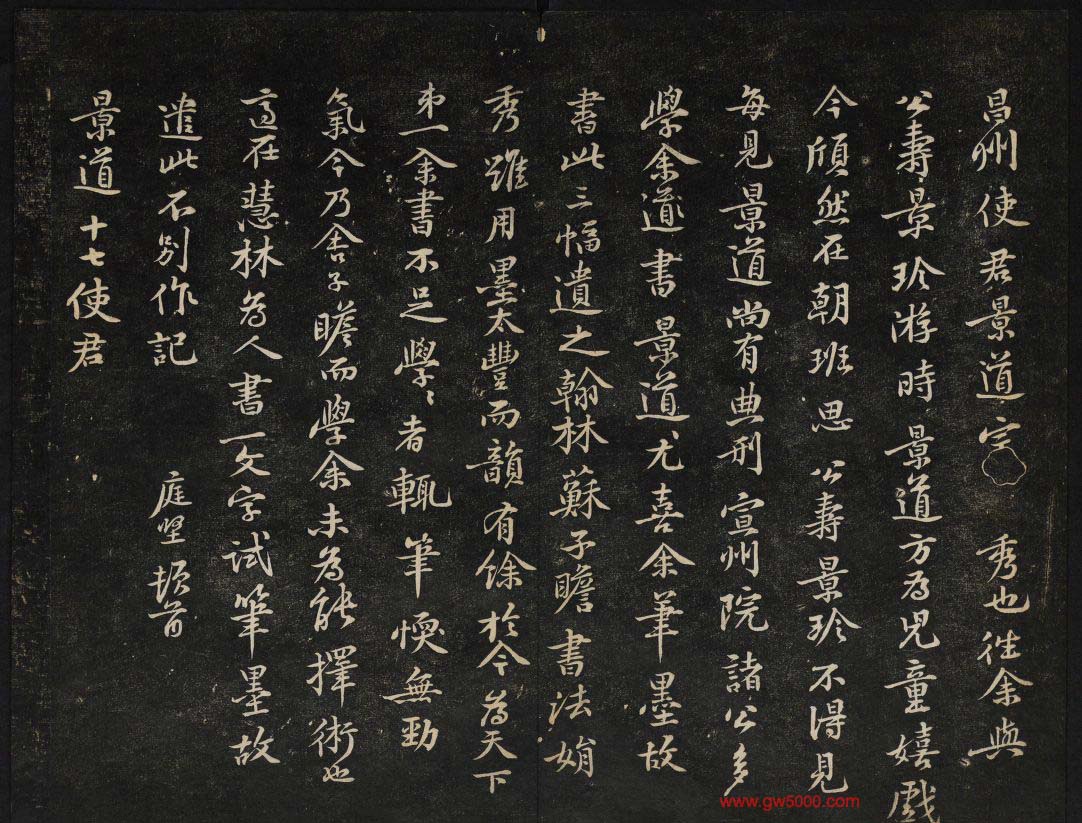 昌州使君景道宗秀也往余與
公壽景珍游時景道方為兒童嬉戲
今頎然在朝班思公壽景珍不得見
每見景道尚有典刑宣州院諸公多
學余道書景道尤喜余筆墨故
書此三幅遺之翰林蘇子瞻書法娟
秀雖用墨太豐而韻有餘於今為天下
第一余書不足學學者輒筆愞無勁
氣今乃舍子瞻而學余未為能擇術也
適在慧林為人書一文字試筆墨故
遣此不別作記
庭堅頓首
景道十七使君
www.gw5000.com